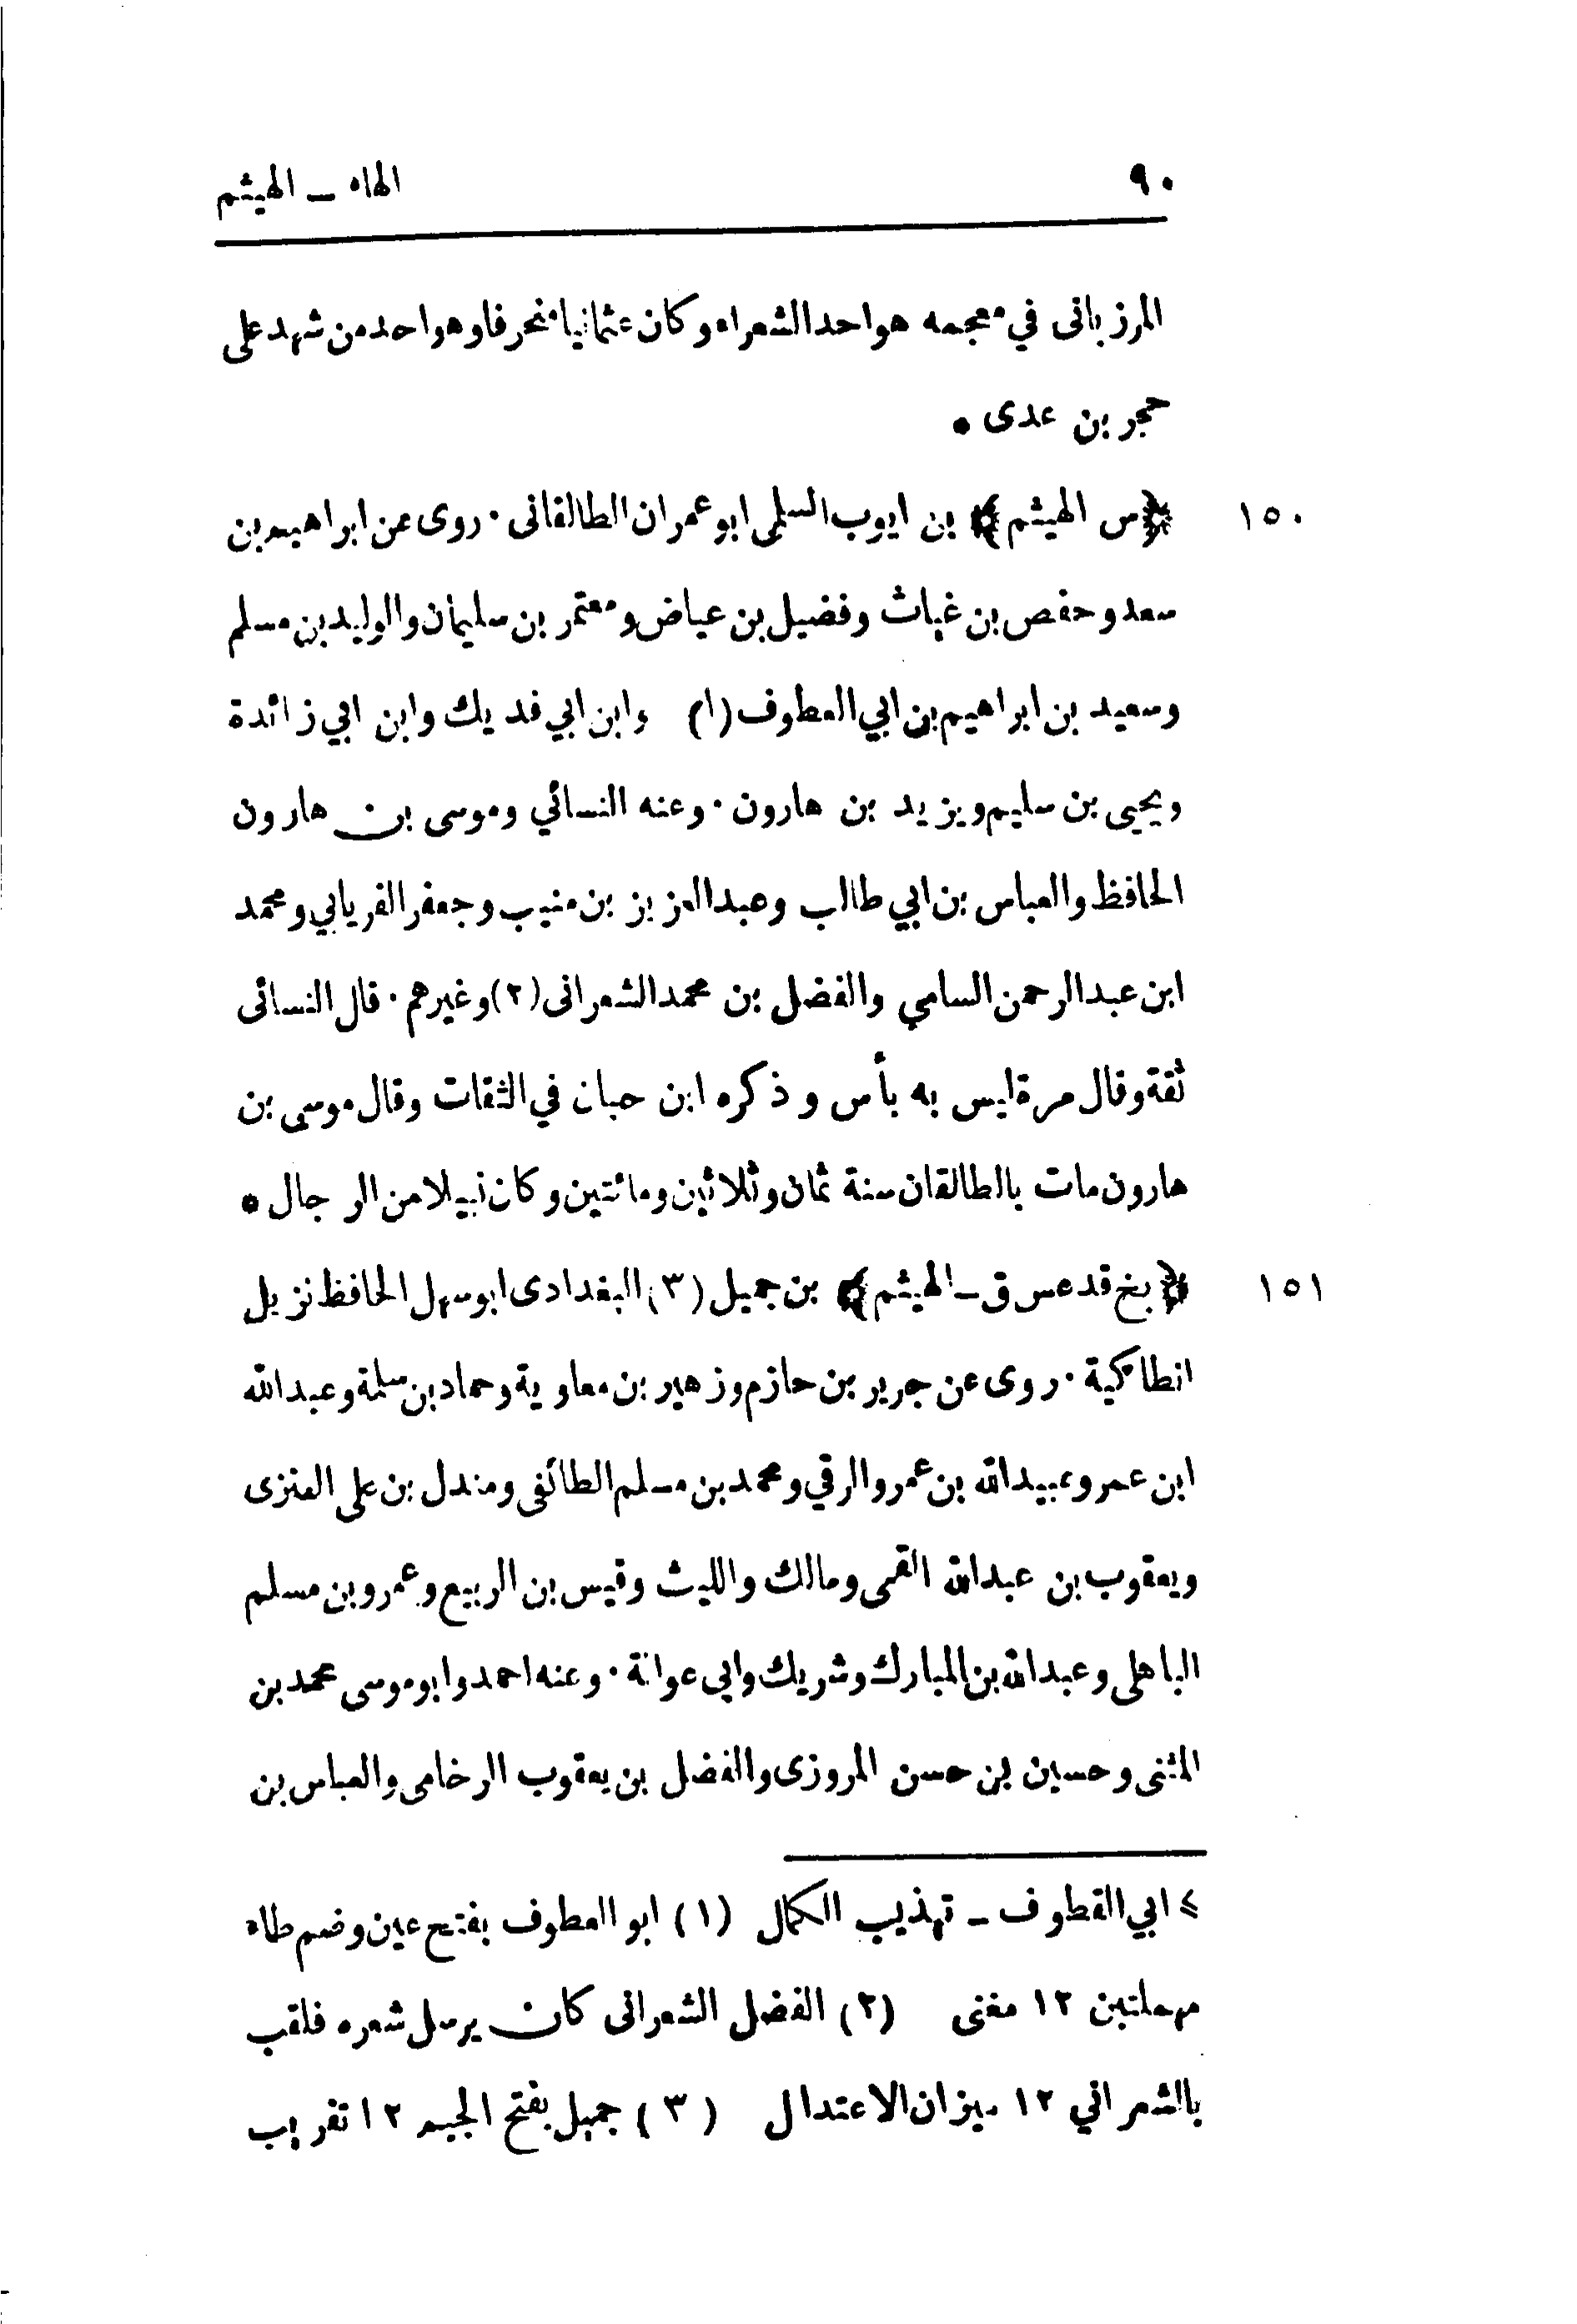 ٩٠ الهاء ــ الهيثم
المرزبانى في معجمه هو احد الشعراء وكان عثمانيا منحرفا وهو احد من شهد على
حجر بن عدى •
١٥٠ ﴿س الهيثم﴾ بن ايوب السلمى ابو عمران الطالقانى · روى عن ابراهيم بن
سعد وحفص بن غياث وفضيل بن عياض ومعتمر بن سليمان والوليد بن مسلم
وسعيد بن ابراهيم بن ابي العطوف (١) وابن ابي فديك وابن ابي زائدة
ويحيى بن سليم ويزيد بن هارون · وعنه النسائي وموسى بن هارون
الحافظ والعباس بن ابي طالب وعبد العزيز بن منيب وجعفر الفريابي ومحمد
ابن عبد الرحمن السامي والفضل بن محمد الشعرانى (٢) وغيرهم · قال النسائى
ثقة وقال مرة ليس به بأس وذكره ابن حبان في الثقات وقال موسى بن
هارون مات بالطالقان سنة ثمان وثلاثين ومائتين وكان نبيلا من الرجال •
١٥١ ﴿بخ قد عس ق ــ الهيثم﴾ بن جميل (٣) البغدادى ابو سهل الحافظ نزيل
انطاكية · روى عن جرير بن حازم وزهير بن معاوية وحماد بن سلمة وعبد الله
ابن عمر وعبيد الله بن عمرو الرقي ومحمد بن مسلم الطائفى ومندل بن على العنزى
ويعقوب بن عبد الله القمى ومالك والليث وقيس بن الربيع وعمرو بن مسلم
الباهلى وعبد الله بن المبارك وشريك وابى عوانة · وعنه احمد وابو موسى محمد بن
المثنى وحسين بن حسن المروزى والفضل بن يعقوب الرخامى والعباس بن
> ابي القطوف ــ تهذيب الكمال (١) ابو العطوف بفتح عين وضم طاء
مهملتين ١٢ مغنى (٢) الفضل الشعرانى كان يرسل شعره فلقب
بالشعراني ١٢ ميزان الاعتدال (٣) جميل بفتح الجيم ١٢ تقريب